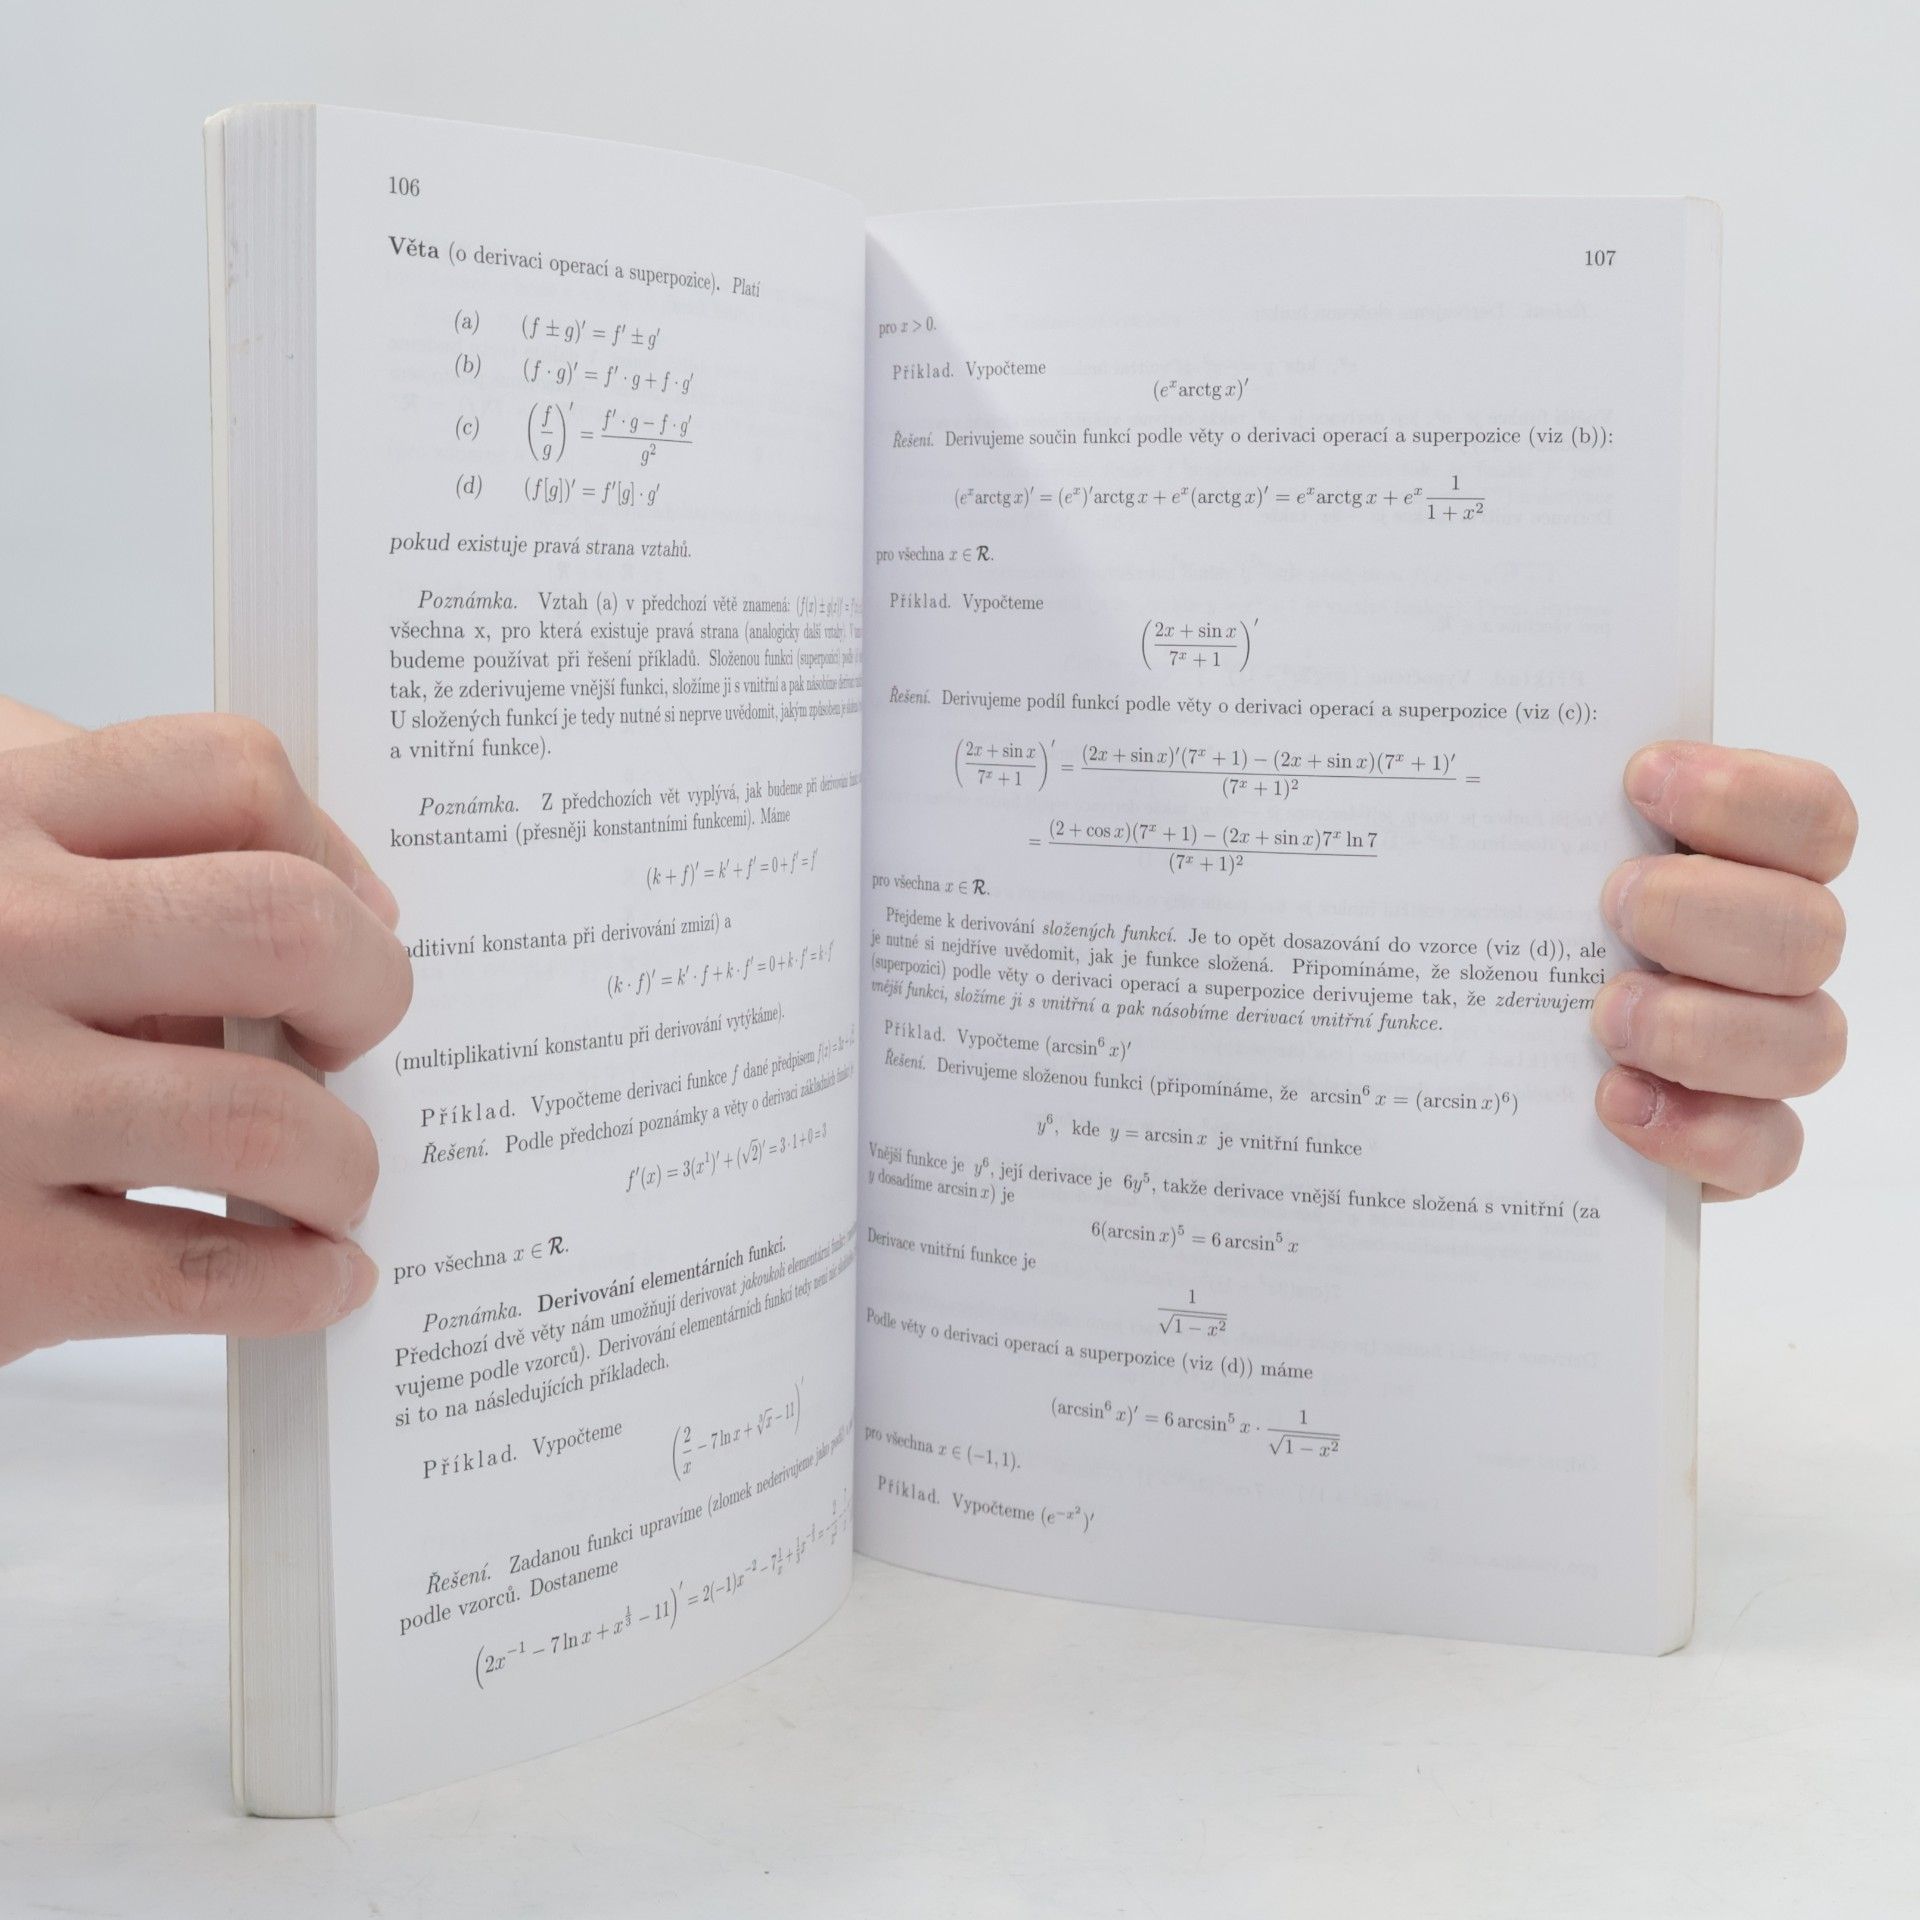 106
Věta (o derivaci operací a superpozice). Platí
(a) (f ± g)′ = f′ ± g′
(b) (f · g)′ = f′ · g + f · g′
(c) (f/g)′ = (f′ · g − f · g′)/g²
(d) (f[g])′ = f′[g] · g′
pokud existuje pravá strana vztahů.
Poznámka. Vztah (a) v předchozí větě znamená: (f(x) ± g(x))′ =
všechna x, pro která existuje pravá strana (analogicky další vztahy).
budeme používat při řešení příkladů. Složenou funkci (superpozici)
tak, že zderivujeme vnější funkci, složíme ji s vnitřní a pak násobíme
U složených funkcí je tedy nutné si neprve uvědomit, jakým způsobem je
a vnitřní funkce).
Poznámka. Z předchozích vět vyplývá, jak budeme při derivování
konstantami (přesněji konstantními funkcemi). Máme
(k + f)′ = k′ + f′ = 0 + f′ = f′
aditivní konstanta při derivování zmizí) a
(k · f)′ = k′ · f + k · f′ = 0 + k · f′ = k · f′
(multiplikativní konstantu při derivování vytýkáme).
Příklad. Vypočteme derivaci funkce f dané předpisem
Řešení. Podle předchozí poznámky a věty o derivaci základních funkcí
f′(x) = 3(x¹)′ + (√2)′ = 3 · 1 + 0 = 3
pro všechna x ∈ R.
Poznámka. Derivování elementárních funkcí.
Předchozí dvě věty nám umožňují derivovat jakoukoli elementární funkci
vujeme podle vzorců). Derivování elementárních funkcí tedy není nic
si to na následujících příkladech.
Příklad. Vypočteme (2/x − 7 ln x + ∛x − 11)′
Řešení. Zadanou funkci upravíme (zlomek nederivujeme jako podíl
podle vzorců. Dostaneme
(2x⁻¹ − 7 ln x + x^(1/3) − 11)′ = 2(−1)x⁻² − 7 1/x + 1/3
107
pro x > 0.
Příklad. Vypočteme
(eˣ arctg x)′
Řešení. Derivujeme součin funkcí podle věty o derivaci operací a superpozice (viz (b)):
(eˣ arctg x)′ = (eˣ)′ arctg x + eˣ (arctg x)′ = eˣ arctg x + eˣ 1/(1 + x²)
pro všechna x ∈ R.
Příklad. Vypočteme
((2x + sin x)/(7ˣ + 1))′
Řešení. Derivujeme podíl funkcí podle věty o derivaci operací a superpozice (viz (c)):
((2x + sin x)/(7ˣ + 1))′ = ((2x + sin x)′(7ˣ + 1) − (2x + sin x)(7ˣ + 1)′)/(7ˣ + 1)² =
= ((2 + cos x)(7ˣ + 1) − (2x + sin x)7ˣ ln 7)/(7ˣ + 1)²
pro všechna x ∈ R.
Přejdeme k derivování složených funkcí. Je to opět dosazování do vzorce (viz (d)), ale
je nutné si nejdříve uvědomit, jak je funkce složená. Připomínáme, že složenou funkci
(superpozici) podle věty o derivaci operací a superpozice derivujeme tak, že zderivujem
vnější funkci, složíme ji s vnitřní a pak násobíme derivací vnitřní funkce.
Příklad. Vypočteme (arcsin⁶ x)′
Řešení. Derivujeme složenou funkci (připomínáme, že arcsin⁶ x = (arcsin x)⁶)
y⁶, kde y = arcsin x je vnitřní funkce
Vnější funkce je y⁶, její derivace je 6y⁵, takže derivace vnější funkce složená s vnitřní (za
y dosadíme arcsin x) je
6(arcsin x)⁵ = 6 arcsin⁵ x
Derivace vnitřní funkce je
1/√(1 − x²)
Podle věty o derivaci operací a superpozice (viz (d)) máme
(arcsin⁶ x)′ = 6 arcsin⁵ x · 1/√(1 − x²)
pro všechna x ∈ (−1, 1).
Příklad. Vypočteme (e^(−x²))′